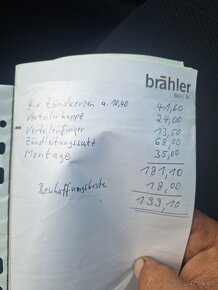 brähler
BERLIN
4x Zündkerzen a. 10,40 41,60
Verteilerkappe 24,00
Verteilerfinger 13,50
Zündleitungssatz 68,00
Montage 35,00
181,10
18,00
199,10